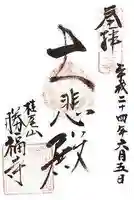 奉拝
平成二十四年六月五日
大悲殿
桂尾山
勝福寺